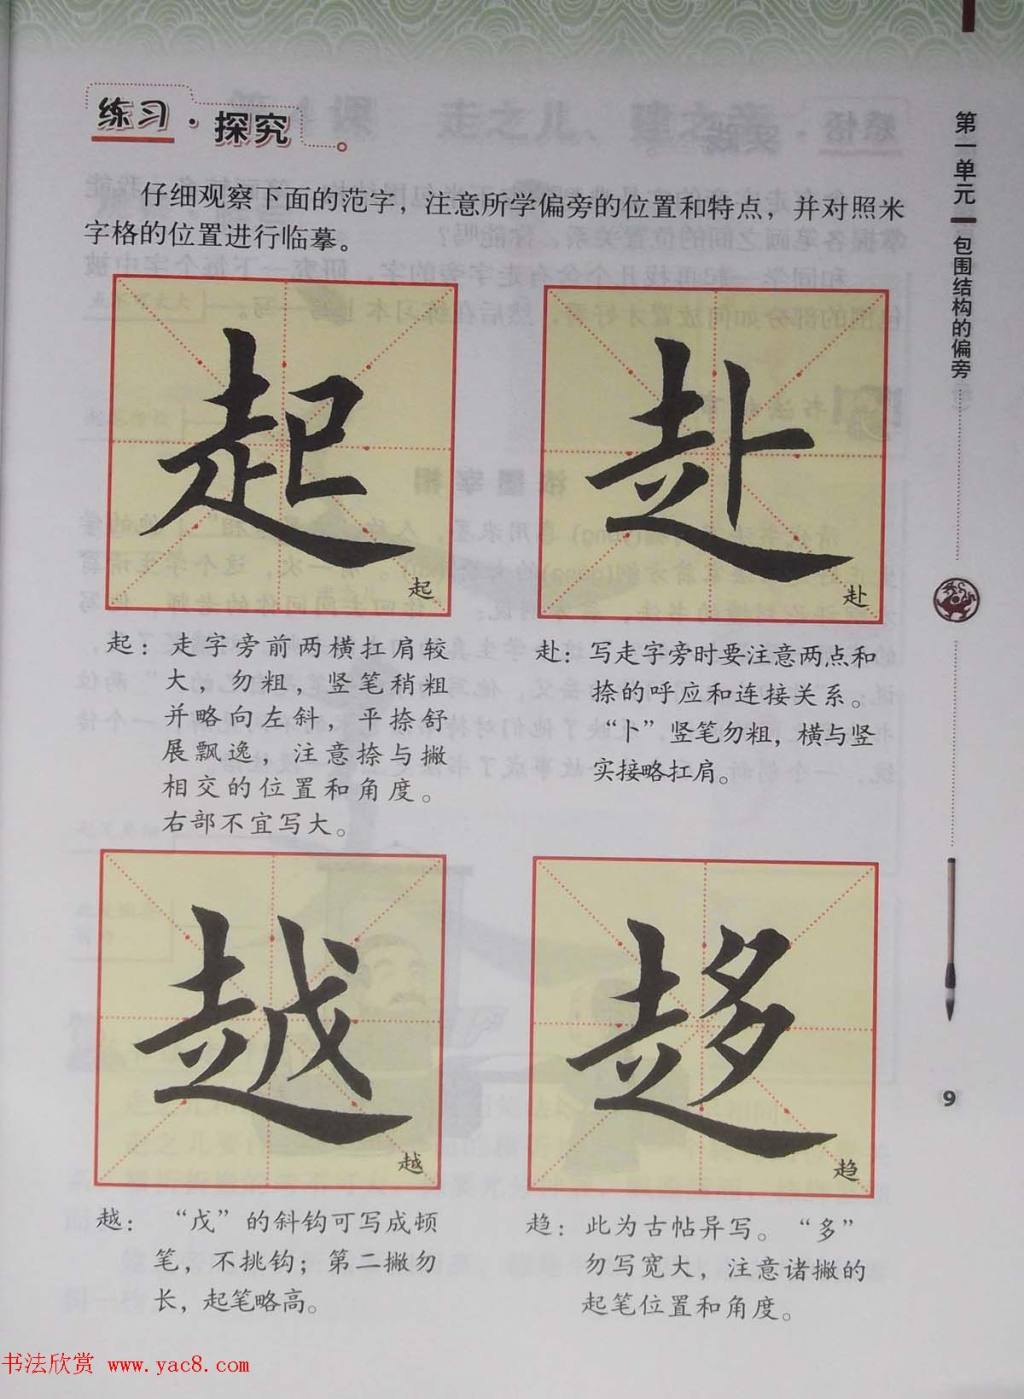 练习·探究
仔细观察下面的范字，注意所学偏旁的位置和特点，并对照米
字格的位置进行临摹。
起
起
赴
赴
起：走字旁前两横扛肩较
大，勿粗，竖笔稍粗
并略向左斜，平捺舒
展飘逸，注意捺与撇
相交的位置和角度。
右部不宜写大。
赴：写走字旁时要注意两点和
捺的呼应和连接关系。
“卜”竖笔勿粗，横与竖
实接略扛肩。
越
越
趍
趋
越：“戉”的斜钩可写成顿
笔，不挑钩；第二撇勿
长，起笔略高。
趋：此为古帖异写。“多”
勿写宽大，注意诸撇的
起笔位置和角度。
第一单元
包围结构的偏旁
9
书法欣赏 www.yac8.com